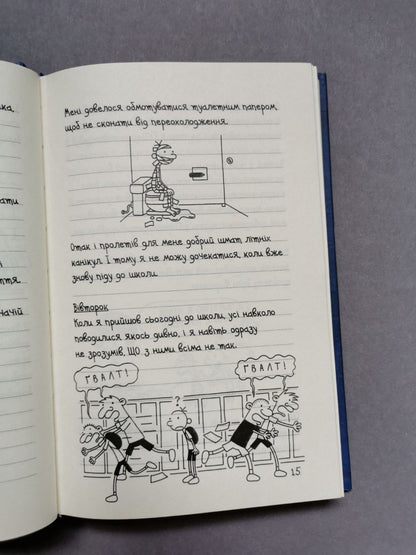 ка,
ати
і
ття.
начій
Мені довелося обмотуватися туалетним папером,
щоб не сконати від переохолодження.
Отак і пролетів для мене добрий шмат літніх
канікул. І тому я не можу дочекатися, коли вже
знову піду до школи.
Вівторок
Коли я прийшов сьогодні до школи, усі навколо
поводилися якось дивно, і я навіть одразу
не зрозумів, ЩО з ними всіма не так.
ҐВАЛТ!
ҐВАЛТ!
?
15